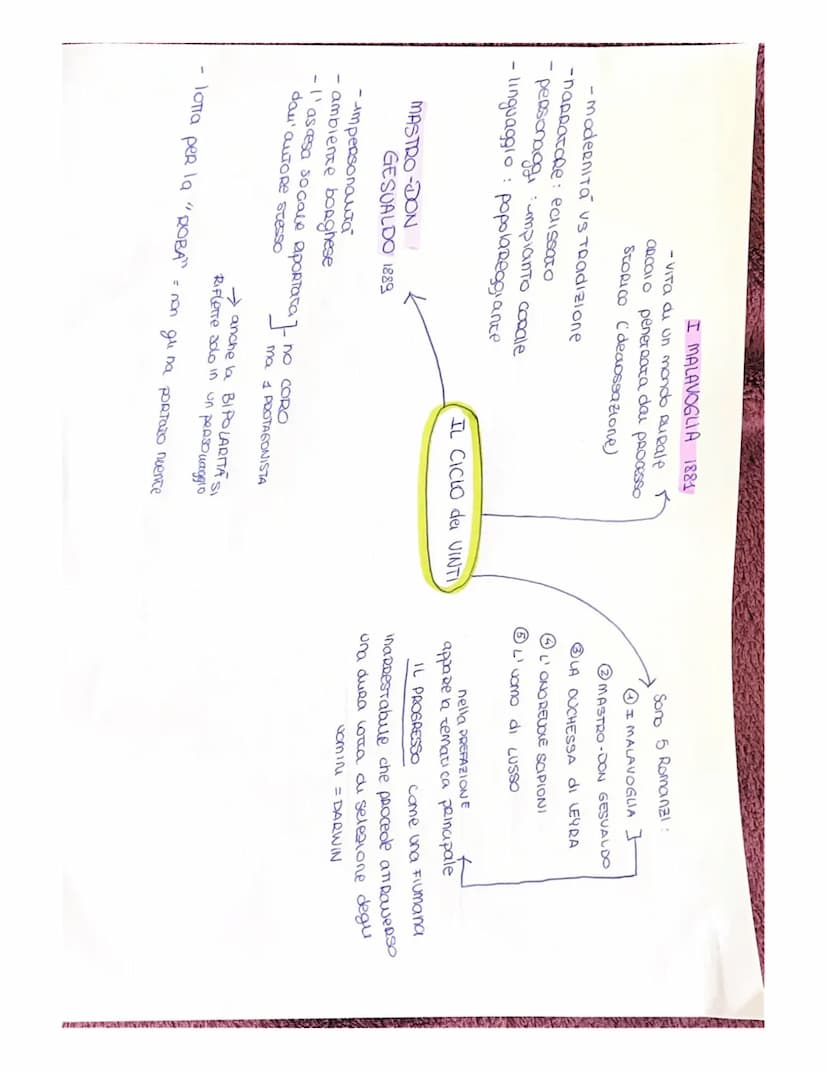 I MALAVOGLIA 1881
- VITA di UN MONDO RURALE
ARCAICO penetrata dai processo
STORICO (decadossazione)
- modernità VS TRADIZIONE
- NARRATORE: eclissato
- personaggi: impianto corale
- linguaggio: popolareggiante
IL CICLO dei VINTI
MASTRO-DON
GESUALDO 1889
- impersonalità
- ambiente borghese
- l'ascesa sociale riportata
dall'autore stesso
]- no CORO
ma 1 PROTAGONISTA
→ anche la BIPOLARITÀ si
RIFLETTE solo in un personaggio
- lotta per la "ROBA" = non gli ha portato niente
Sono 5 Romanzi:
① I MALAVOGLIA ]
② MASTRO-DON GESUALDO
③ LA DUCHESSA di LEYRA
④ L'ONOREVOLE SCIPIONI
⑤ L'UOMO di LUSSO
nella PREFAZIONE
appare la tematica principale
IL PROGRESSO come una FIUMANA
inarrestabile che procede attraverso
una dura lotta di selezione degli
uomini = DARWIN